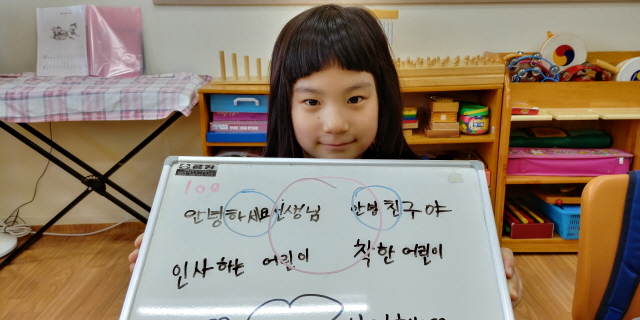 100
안녕하세요선생님 안녕 친구야
인사하는 어린이 착한 어린이